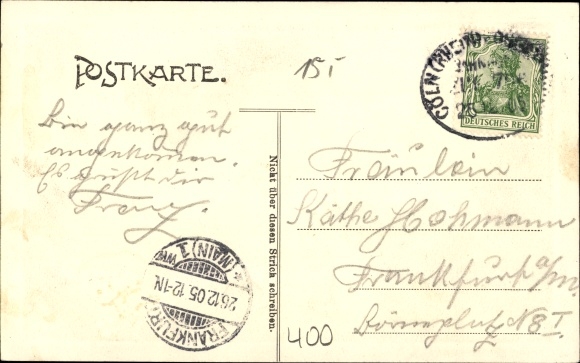 POSTKARTE.
15 I
CÖLN (RHEIN)
25
DEUTSCHES REICH
Bin ganz gut
angekommen.
Es grüßt dir
Franz.
Nicht über diesen Strich schreiben.
Fräulein
Käthe Hohmann
Frankfurt a/m.
Börneplatz N 8 I
FRANKFURT
(MAIN) 1
26.12.05.12-1N.
400